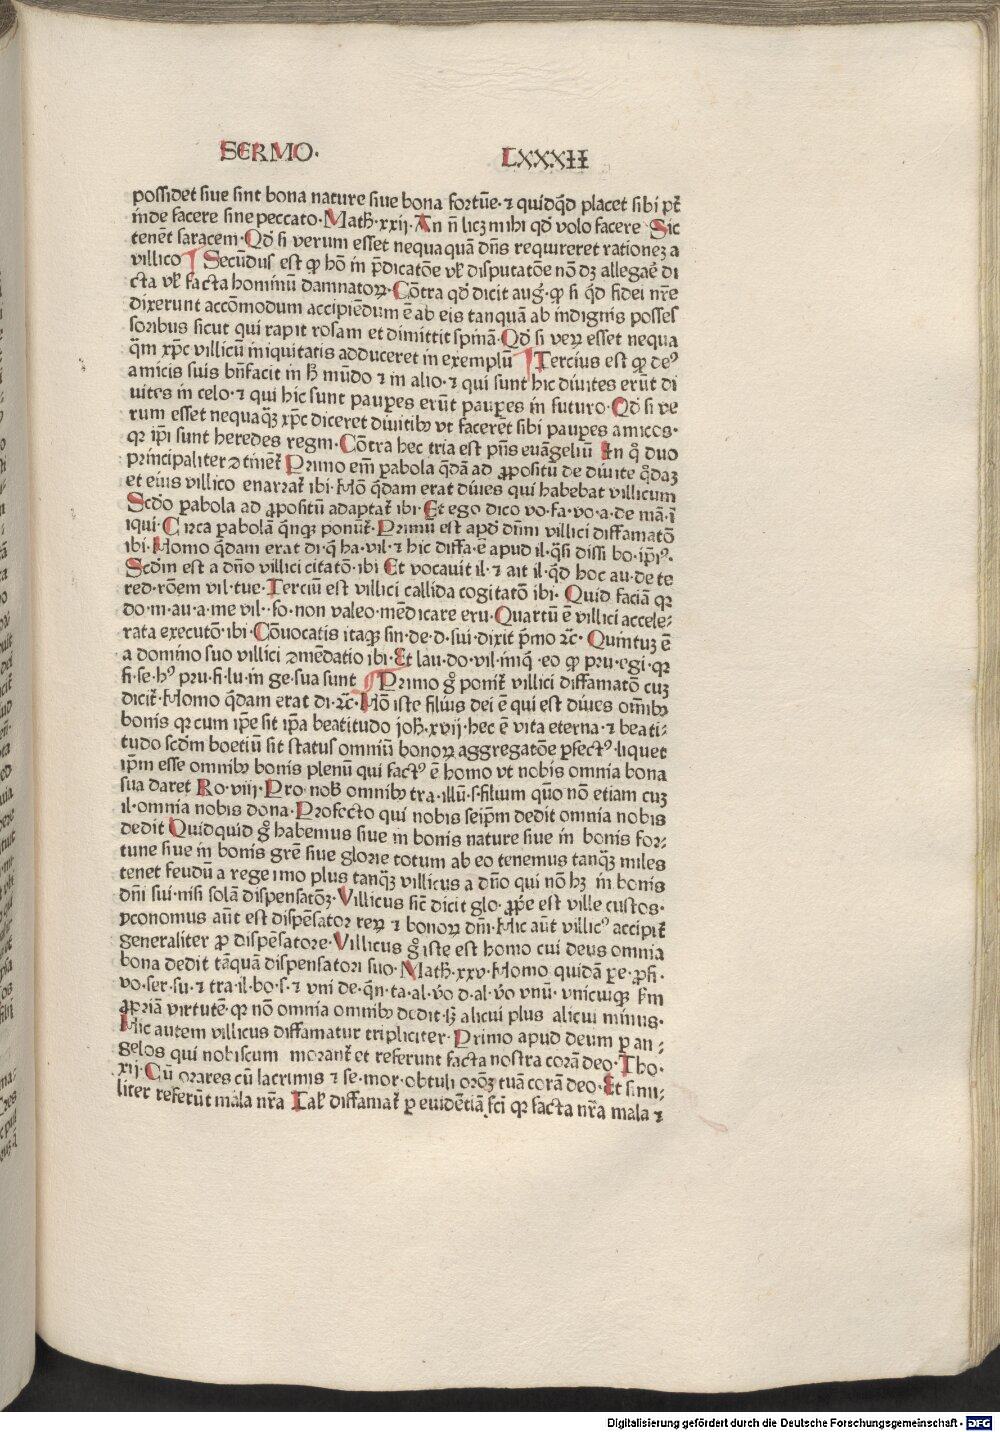 SERMO. LXXXII
possidet siue sint bona nature siue bona fortūe · ⁊ quidq̄d placet sibi pt̄
inde facere sine peccato · Math̄ · xxij · An n̄ licz mihi qd̄ volo facere Sic
tenēt saraceni · Qd̄ si verum esset nequaquā dn̄s requireret rationez a
villico ¶ Secūdus est ꝙ hō in p̄dicatōe vl̓ disputatōe nō dz allegaē di
cta vl̓ facta hominū damnatoꝝ · Cōtra qd̄ dicit aug̓ · ꝙ si q̄d fidei nr̄e
dixerunt accōmodum accipiēdum ē ab eis tanquā ab indignis posses
soribus sicut qui rapit rosam et dimittit spinā · Qd̄ si veꝝ esset nequa
q̄m xp̄c villicū iniquitatis adduceret in exemplū ¶ Tercius est ꝙ deꝰ
amicis suis bn̄facit in h̄ mūdo ⁊ in alio · ⁊ qui sunt hic diuites erūt di
uites in celo · ⁊ qui hic sunt paupes erūt paupes in futuro · Qd̄ si ve
rum esset nequaq̄ꝫ xp̄c diceret diuitibꝫ vt facerēt sibi paupes amicos ·
qꝛ ip̄i sunt heredes regni · Cōtra hec tria est pn̄s euāgeliū In q̊ duo
principaliter ꝯtinēt̄ Primo em̄ ꝑabola q̄dā ad ꝓpositū de diuite q̄daꝫ
et eius villico enarrat̄ ibi · Hō q̄dam erat diues qui habebat villicum
Scd̄o ꝑabola ad ꝓpositū adaptat̄ ibi · Et ego dico vo · fa · vo · a · de mā · ī
iqui · Circa ꝑabolā q̄nqꝫ ponūt̄ · Primū est apd̄ dn̄m villici diffamatō
ibi · Homo q̄dam erat di · q̄ ha · vil · ⁊ hic diffa · ē apud il · q̄si dissi bo · ip̄iꝰ ·
Scd̄m est a dn̄o villici citatō · ibi Et vocauit il · ⁊ ait il · q̄d hoc au · de te
red · rōem vil · tue · Terciū est villici callida cogitatō ibi · Quid faciā qꝛ
do · m · au · a · me vil · · fo · non valeo · mēdicare eru · Quartū ē villici accele-
rata executō · ibi · Cōuocatis itaqꝫ sin · de · d · sui · dixit p̄mo ⁊c̄ · Quintuꝫ ē
a domino suo villici ꝯmēdatio ibi · Et lau · do · vil · iniq̄ · eo ꝙ pru · egi · qꝛ
fi · se · hꝰ pru · fi · lu · in ge · sua sunt ¶ Primo g̊ ponit̄ villici diffamatō cuꝫ
dicit̄ · Homo q̄dam erat di · ⁊c̄ · Hō iste filius dei ē qui est diues om̄ibꝫ
bonis qꝛ cum ip̄e sit ip̄a beatitudo joh̄ · xvij · hec ē vita eterna · ⁊ beati-
tudo scd̄m boetiū sit status omniū bonoꝝ aggregatōe ꝑfectꝰ · liquet
ip̄m esse omnibꝫ bonis plenū qui factꝰ ē homo vt nobis omnia bona
sua daret Ro · viii · Pro nob̄ omnibꝫ tra · illū · s · filium quō nō etiam cuꝫ
il · omnia nobis dona · Profecto qui nobis seip̄m dedit omnia nobis
dedit Quidquid g̊ habemus siue in bonis nature siue in bonis for-
tune siue in bonis grē siue glorie totum ab eo tenemus tanq̄ꝫ miles
tenet feudū a rege imo plus tanq̄ꝫ villicus a dn̄o qui nō hꝫ in bonis
dn̄i sui · nisi solā dispensatōꝫ · Villicus sic̄ dicit glo · ꝓp̄e est ville custos ·
yconomus aūt est dispēsator reꝝ ⁊ bonoꝝ dn̄i · Hic aūt villicꝰ accipit̄
generaliter ꝓ dispēsatore · Villicus g̊ iste est homo cui deus omnia
bona dedit tāquā dispensatori suo · Math̄ · xxv · Homo quidā ꝑe · ꝓfi ·
vo · ser · su · ⁊ tra · il · bo · s · ⁊ vni de · q̄n · ta · al · v̊o d · al · v̊o vnū · vnicuiqꝫ s̄m
ꝓpriā virtutē · qꝛ nō omnia omnibꝫ dedit · sꝫ alicui plus alicui minus ·
Hic autem villicus diffamatur tripliciter · Primo apud deum ꝑ an-
gelos qui nobiscum morant̄ et referunt facta nostra corā deo · Tho ·
xij · Cū orares cū lacrimis ⁊ se · mor · obtuli orōꝫ tuā corā deo · Et simi-
liter referūt mala nr̄a Tal̓ diffamat̄ ꝑ euidētiā fc̄i qꝛ facta nr̄a mala ⁊
Digitalisierung gefördert durch die Deutsche Forschungsgemeinschaft - DFG